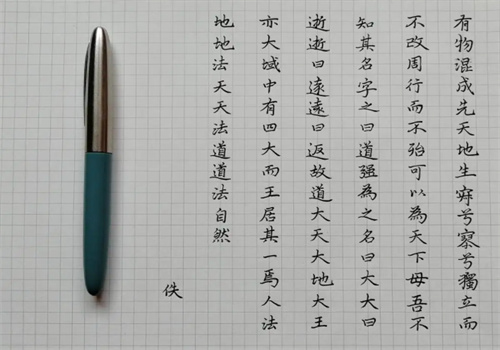 有物混成先天地生寂兮寥兮獨立而
不改周行而不殆可以為天下母吾不
知其名字之曰道强為之名曰大大曰
逝逝曰遠遠曰返故道大天大地大王
亦大域中有四大而王居其一焉人法
地地法天天法道道法自然
佚